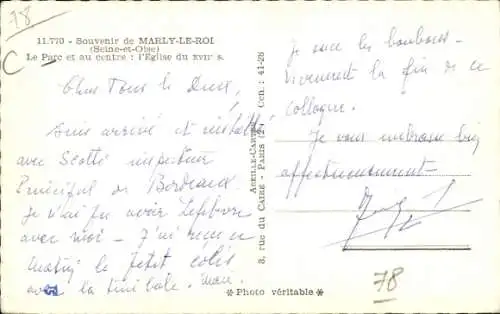 78
11.770 - Souvenir de MARLY-LE-ROI
(Seine-et-Oise)
Le Parc et au centre : l'Église du XVIIe s.
C
Chers Tous le Deux,
Suis arrivé et installé
avec Scotté inspecteur
Principal de Bordeaux
Je n'ai pu avoir Lefebvre
avec moi - J'ai reçu ce
matin le petit colis
avec la timbale.
ABEILLE-CARTES
8, rue du CAIRE - PARIS (2e) Cen. : 41-28
Je suce les bonbons
vivement la fin de ce
colloque.
Je vous embrasse bien
affectueusement
78
* Photo véritable *